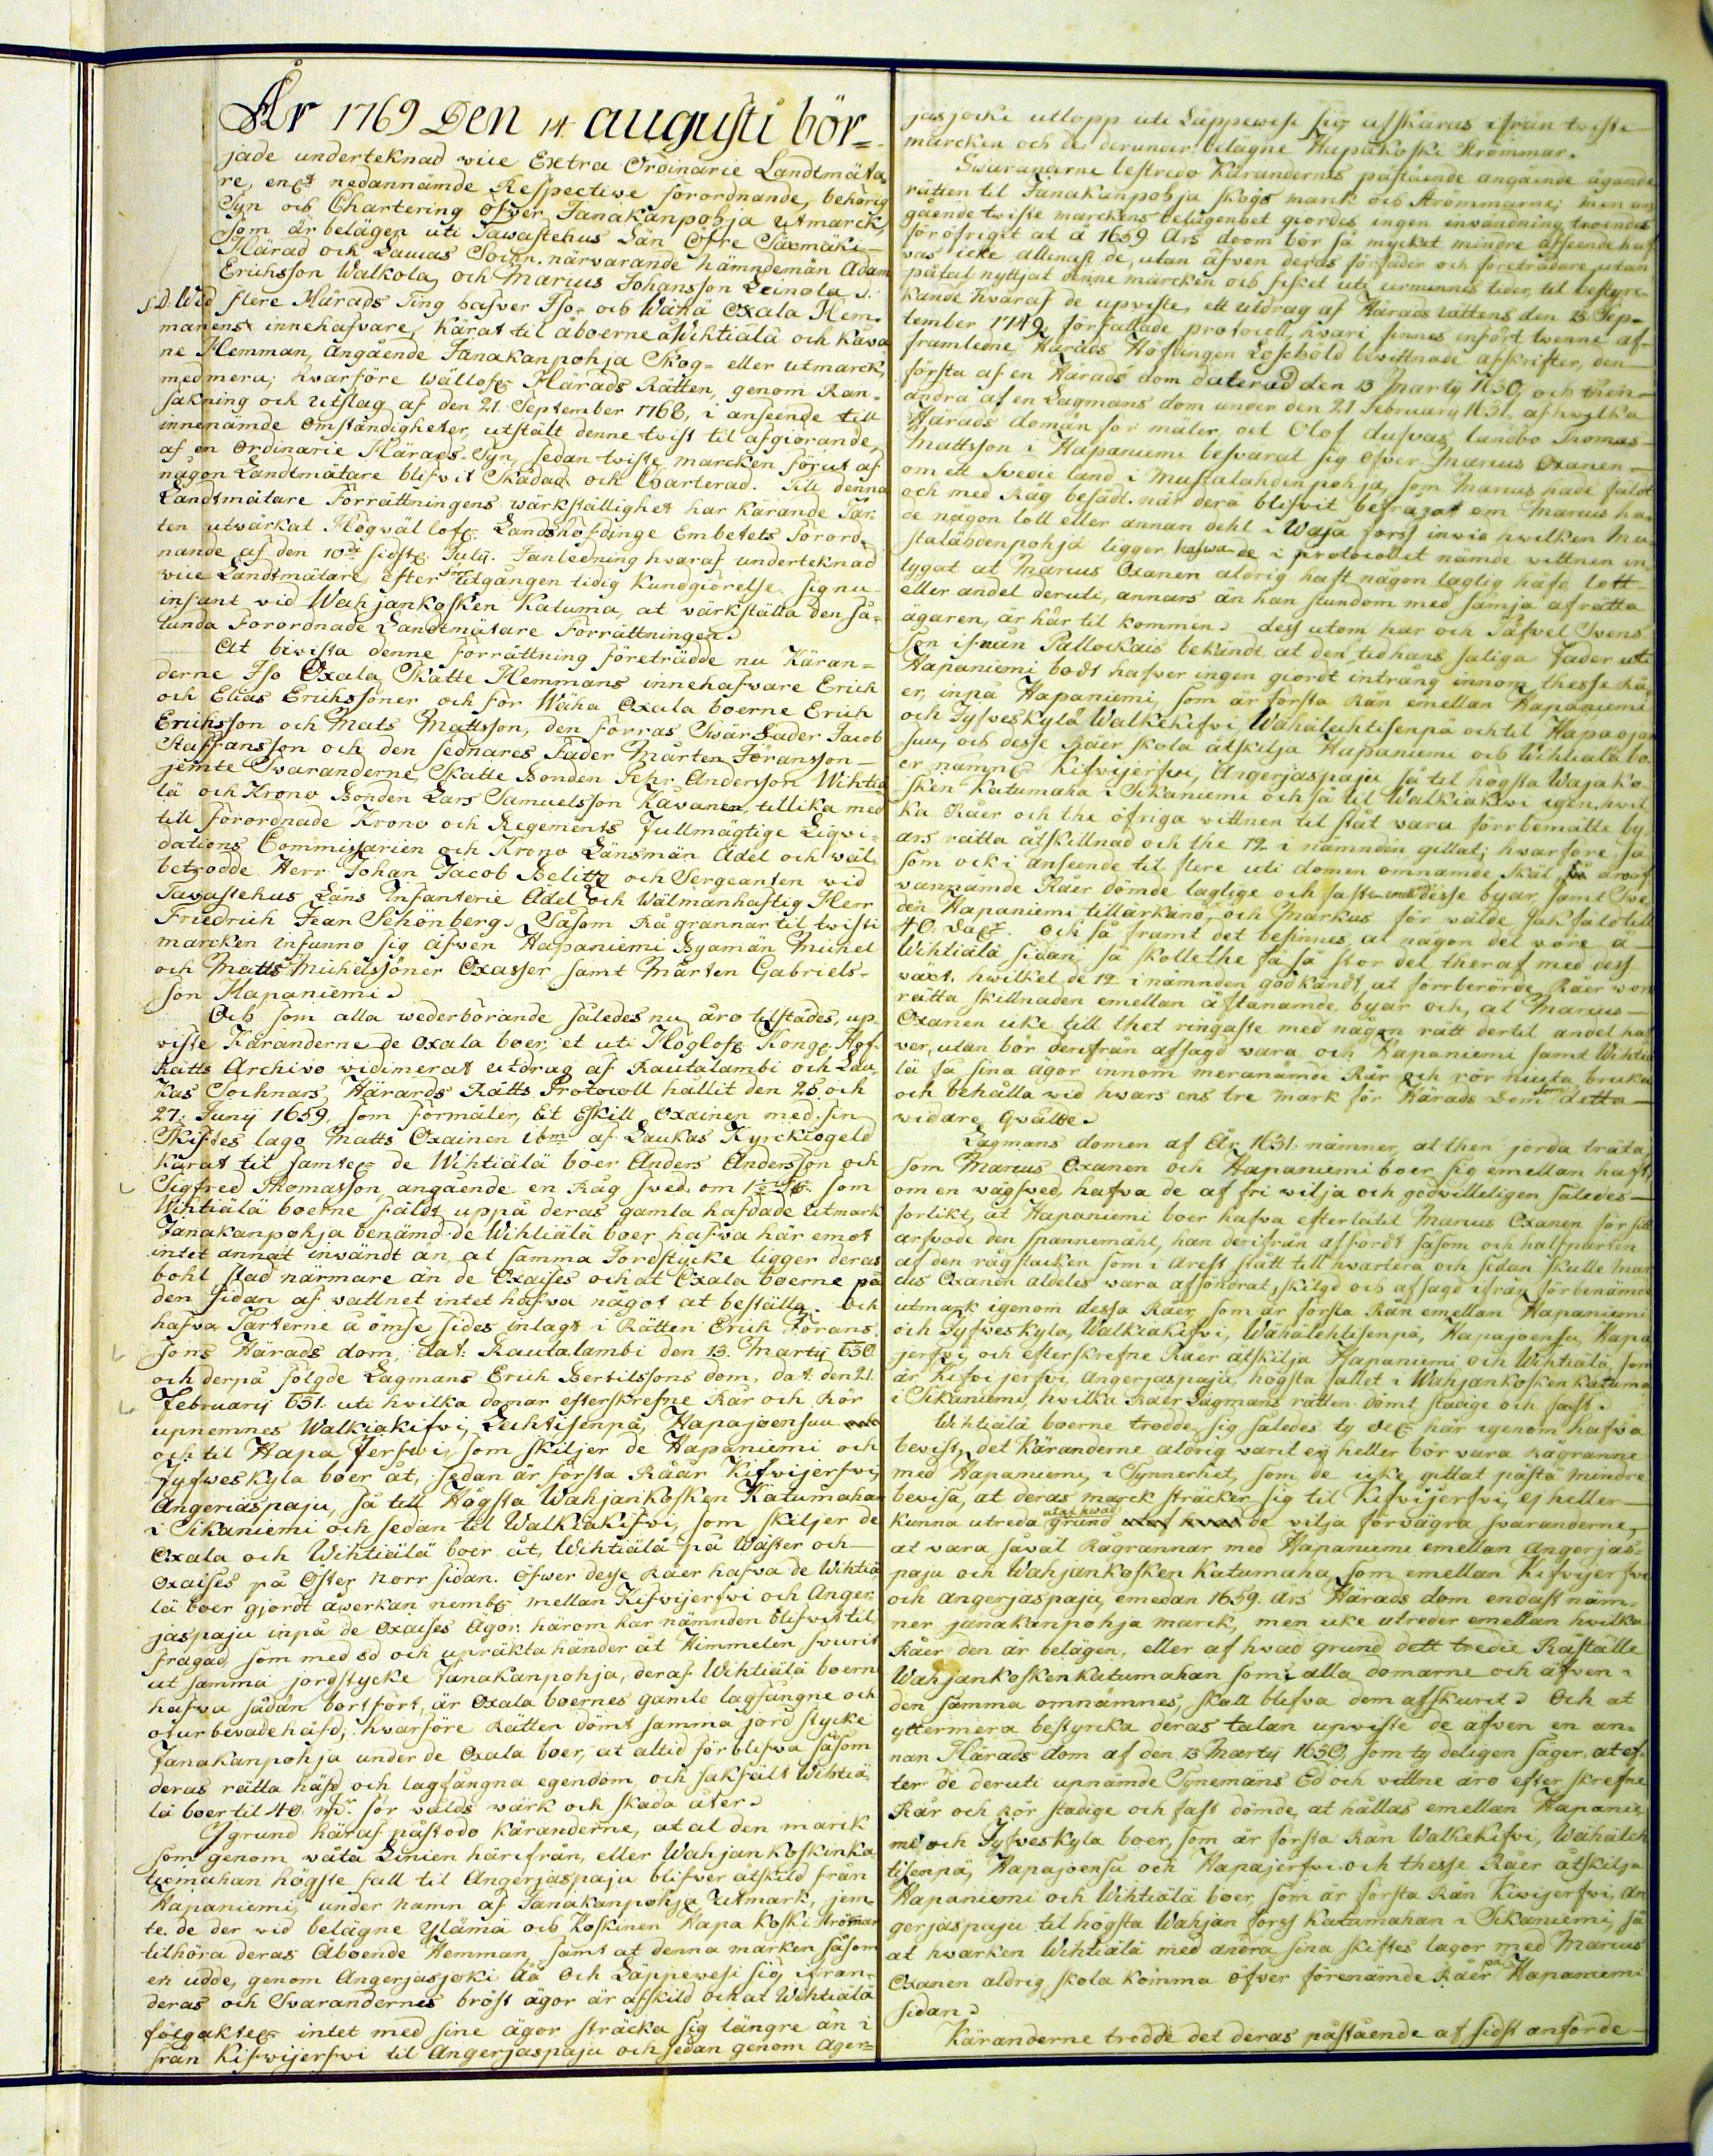 År 1769 Den 14 augusti bör=
jade underteknad vice Extra Ordinarie Landtmäta=
re, enl:t nedannämde Respective förordnande, behörig
Syn och Chartering öfver Janakanpohja utmarck,
som är belägen uti Tawastehus Län Öfre Säxmäki
Härad och Laucas Sochn. närvarande Nämndemän Adam
Erichsson Walkola, och Marius Johansson Leinola.
S.D. Wid flere Härads Ting hafver Iso- och Wähä Oxala Hem=
manens innehafvare, kärat til åboerne å Wihtiälä och Kåva
ne Hemman, angående Janakanpohja Skog- eller utmarck,
med mera; hvarföre Wällofl. Härads Rätten, genom Ran=
sakning och Utslag af den 21. September 1768, i anseende till
innenämde omständigheter, utstält denne twist til afgiörande,
af en Ordinarie Härads-Syn, sedan twiste marcken förut af
någon Landtmätare blifvit Skådad och Charterad. Till denna
Landtmätare Förrättningens wärkställighet har Kärande Par=
ten utwärkat Högwällofl. Landshöfdinge Embetets Förord=
nande af den 10de sidstl. July. I anledning hvaraf underteknad
vice Landtmätare, efter förutgången tidig Kundgiörelse, sig nu
infant vid Wahjankosken Katuma, at wärkställa den så=
lunda Förordnade Landtmätare Förrättningen.
At biwista denne förrättning företrädde nu Käran=
derne Iso Oxala Skatte Hemmans innehafvare Erich
och Elias Erichssöner och för Wähä Oxala boerne Erich
Erichsson och Mats Mattsson, den förras Swär Fader Jacob
Staffansson och den sednares Fader MårtenFöransson
jemte Svaranderne, Skatte Bonden Pehr Andersson Wihtiä
lä och Krono Bonden Lars Samuelsson Kåvanen, tillika med
till förordnade Krono och Regements Fullmägtige Liqvi=
dations Commissarien och Krono Länsman Ädel och wäl=
betrodde Herr Johan Jacob Belitz och Sergeanten wid
Tawastehus Läns Infanterie Ädel och Wälmanhaftig Herr
Friedrich Jean Schönberg. Såsom Rågrannar til twiste
marcken infunno sig äfven Hapaniemi Byamän Michel
och Matts Michelssöner Oxasser samt Mårten Gabriels=
son Hapaniemi.
Och som alla wederbörande således nu äro tilstädes, up=
viste Käranderne de Oxala boer, et uti Höglofl. Kongl. Hof=
Rätts Archivo widimerat utdrag af Rautalambi och Lau=
kas Sochnars, Härards Rätts Protocoll hållit den 25 och
27. Junij 1659, som förmäler, Et Eskill Oxainen med sin
Skiftes lago Matts Oxainen ibm: af Laukas Kyrckiogeld
kärat til samtel. de Wihtiälä boer Anders Andersson och
Sigfred Thomasson angående en Råg swed. om 1½ som
Wihtiälä boerne fäldt uppå deras gamla hafdade Utmark
Janakanpohja benämd. de Wihtiälä boer hafwa här emot
intet annat inwändt än at samma Jordstycke ligger deras
bohl stad närmare än de Oxaises och at Oxala boerne på
den sidan af vattnet intet hafwa något at beställa. Och
hafva Parterne å ömse sides inlagt i Rätten Erich Förans
sons Härads dom, dat: Rautalambi den 13 Martij 1630
och derpå fölgde Lagmans Erich Bertilssons dom, dat. den 21.
Februarij 1631. uti hvilka domar efterskrefne Rår och Rör
upnemnes Walkiakifvi, Luhtisenpä, Hapajoensuu
och til Hapa Jerfvi, som skiljer de Hapaniemi och
Jyfweskyla boer åt, sedan är första Råår Kifvijerfvi,
Angeriaspaju, så till Högsta Wahjankosken Katumahan
i Sikaniemi och sedan til Walkiakifvi, som skiljer de
Oxala och Wihtiälä boer åt, Wihtiälä på Wäster och
Oxaises på Öster norr sidan. Öfwer desse Råer hafva de Wihtiä
lä boer gjordt åwerkan nembl. mellan Kifvijerfvi och Anger
jaspaju inpå de Oxaises Ägor. härom har nämnden blifvit til
frågad, som med ed och upräkta händer åt Himmelen svurit
at samma jordstycke Janakanpohja, deraf Wihtiälä boerne
hafva sådan bortfört, är Oxala boernes gamle lagfångne och
oturbevade häfd; hwarföre Rätten dömt samma jord stycke
Janakanpohja under de Oxala boer, at altid förblifva såsom
deras rätta häfd och lagfångna egendom och sakfält Wihtiä
lä boer til 40 mk. för wålds wärk och skada åter.
I grund häraf påstodo käranderne, at al den marck
som genom wåta Linien härifrån, eller Wahjankoskinka
tumahan högste fall til Angerjaspaju blifver åtskild från
Hapaniemi, under namn af Janakanpohja Utmark, jem=
te de der vid belägne Ylämä och Koskinen Hapa koski strömar
tilhöra deras Åboende Hemman, samt at denna marken såsom
en udde, genom Angerjasjoki åä och Läppewesi sig ifrån
deras och Svarandernes bröst ägor är afskild och at Wihtiälä
fölgaktel. intet med sine ägor sträcka sig längre än i
från Kifvijerfvi til Angerjaspaju och sedan genom Ager=
jasjocki utlopp uti Läppewesi sig afskäras ifrån twiste
marcken och de derunder belägne Hapakoski Strömmar.
Svaranderne bestredo Kärandernes påstående angående ägande
rätten til Janakanpohja skogs mark och Strömmarne; men an
gående twiste marckens belägenhet giordes ingen inwändning, troendes
för öfrigit at å 1659 Års doom bör så mycket mindre afseende haf
vas icke allenast de, utan äfven deras förfäder och företrädare utan
påtal nyttjat denne marcken och fisket uti urminnes tider, til bestyrc=
kande hwaraf de upviste, ett Utdrag af Härads Rättens den 15 Sep=
tember 1749 författade protocoll, hvari finnes infört twenne af=
framledne Härads Höfdingen Loschöld bewittnade afskrifter, den
första af en Härads dom daterad den 13 Martij 1630, och then
andra af en Lagmans dom under den 21 February 1631. af hwilka
Härads domen för mäler, at Olof dufvas landbo Thomas
Mattsson i Hapaniemi besvärat sig öfver Marcus Oxanen
om ett Svedie land i Mustalahdenpohja, som Marcus hade fäldt
och med Råg besådt. när dera blifvit befrågat om Marcus ha=
de någon lott eller annan dehl i Waja forss inwid hwilken Mu
stalahdenpohja ligger, hafwa de i protocollet nämde vittnen in
tygat at Marcus Oxanen aldrig haft någon laglig häfd, lott
eller andel deruti, annars än han stundom med sämja af rätta
ägaren, är här til kommen. dess utom har och Påfwel Svens
son ifrån Pallockais bekändt at den tid hans saliga Fader uti
Hapaniemi bodt hafver ingen giordt intrång innom thesse Rå
er, inpå Hapaniemi, som är första Rån emellan Hapaniemi
och Jyfweskylä Walkekifvi, Wähälahtisenpä och til Hapaojan
suu, och desse Råer skola åtskilja Hapaniemi och Wihtiälä bo
er nämnl. Kifwijerfvi, Angerjaspaju så til högsta Wajako
sken Katumaha i Sikaniemi och så til Walkiakivi igen, hwil
ka Råer och the öfriga vittnen til stått vara förrbemälte by
ars rätta åtskillnad och the 12 i nämnden gillat; hwarföre så
som ock i anseende til flere uti domen omnämde skäl, äro of
vannämde Råer dömde laglige och faste desse byar, samt Swe
den Hapaniemi tillärkänd, och Markus för wälde sak fäld till
40. Dal. och så framt det befinnes, at någon del wore å
Wihtiälä sidan, så skolle the få så stor del theraf med dess
växt. hwilket de 12 i nämnden godkändt, at förrberörde Råer woro
rätta skillnaden emellan åstanämde byar och, at Marcus
Oxanen icke till thet ringaste med någon rätt dertil andel haf
ver, utan bör derifrån afsagd vara och Hapaniemi samt Wihtiä
lä få sina ägor innom meranämde Rår och rör niuta bruka
och behålla vid hwars ens tre mark för Härads Dom för detta
widare Qwälde.
Lagmans domen af År 1631. nämner at then jorda träta,
som Marcus Oxanen och Hapaniemi boer sig emellan haft
om en wägswed, hafva de af fri wilja och godwilleligen således
förlikt, at Hapaniemi boer hafva efterlåtit Marcus Oxanen för sitt
arfvode den spannemahl, han derifrån affördt såsom och halfparten
af den rågstacken som i arest stått till hwartera och sedan skulle Mar
cus Oxanen aldeles vara afsöndrat, skilgd och afsagd ifrån förbenämde
utmark igenom dessa Råer, som är första Rån emellan Hapaniemi
och Jyfweskyla, Walkiakifvi, Wähälehtisenpä, Hapajoensu, Hapa
jerfvi, och efterskrefne Råer åtskilja Hapaniemi och Wihtiälä, som
är Kifvijerfvi, Angerjaspaju, högsta fallet i Wahjankosken Katuma
i Sikaniemi, hwilka Råer Lagmans rätten dömt stadige och fast.
Wihtiälä boerne trodde sig således tydel. här igenom hafva
bevist, det Käranderne aldrig varit ej heller bör vara Rågranne
med Hapaniemi, i Synnerhet, som de icke gittat påstå mindre
bevisa, at deras marck sträcker sig til Kifvijerfvi, ej heller
kunna utreda grund utaf hwad de vilja förvägra svaranderne,
at vara såväl Rågrannar med Hapaniemi emellan Angerjas=
paju och Wahjankosken Katumaha, som emellan Kifvijerfvi
och Angerjaspaju, emedan 1659. Års Härads dom endast näm=
ner janakanpohja marck, men icke utreder emellan hwilka
Råer den är belägen, eller af hwad grund dett tredie Råställe
Wahjankoskenkatumahan som i alla domarne och äfven i
den samma omnämnes, skall blifva dem afskurit. Och at
yttermera bestyrcka deras talan upviste de äfven en an=
nan Härads dom af den 13 Martij 1630, som tydeligen säger, at ef=
ter de deruti upnämde Synemäns Ed och vittne äro efter skrefne
Rår och Rör stadige och fast dömde, at hållas emellan Hapanie
mi och Jyfweskyla boer, som är första Rån Walkekifvi, Wähäleh
tisenpä, Hapajoensu och Hapajerfvi och thesse Råer åtskilja
Hapaniemi och Wihtiälä boer, som är första Rån Kiwijerfwi, An
gerjaspaju til högsta Wahjan forss Katumahan i Sikaniemi, så
at hwarken Wihtiälä med andra sina skiftes lagor med Marcus
Oxanen aldrig skola komma öfver förenämde Råer på Hapaniemi
sidan.
Käranderne trodde det deras påstående af sidst anförde